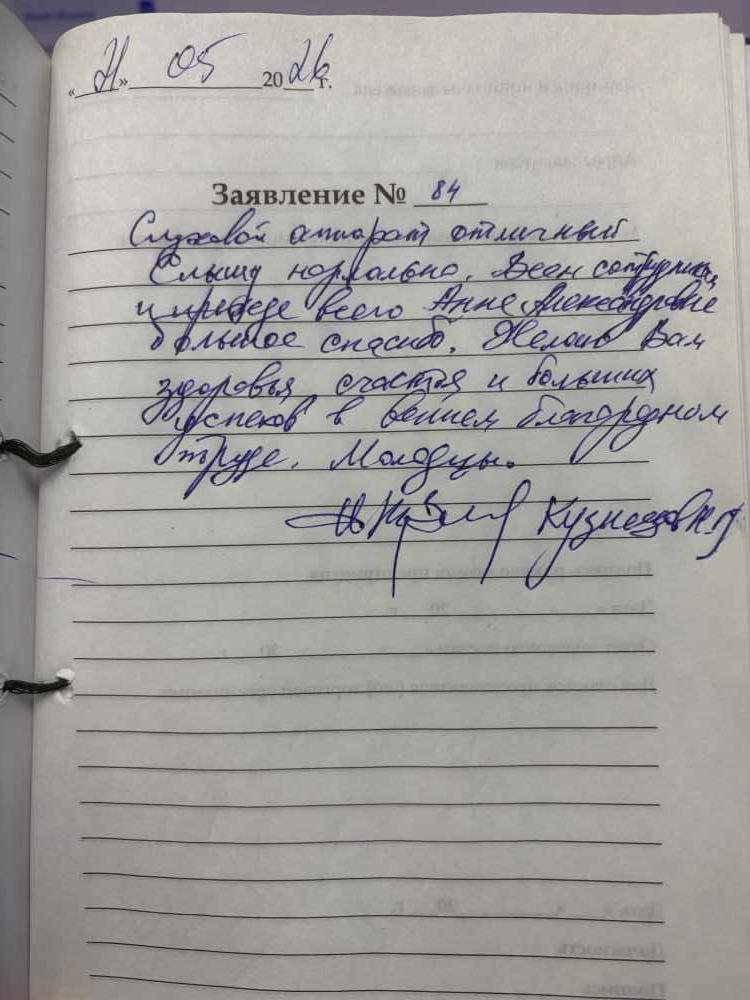 «21» 05 2026 г.
Заявление № 84
Слуховой аппарат отличный
Слышу нормально. Всем сотрудникам
и прежде всего Анне Александровне
большое спасибо. Желаю Вам
здоровья счастья и больших
успехов в вашем благородном
труде. Молодцы.
Кузнецов